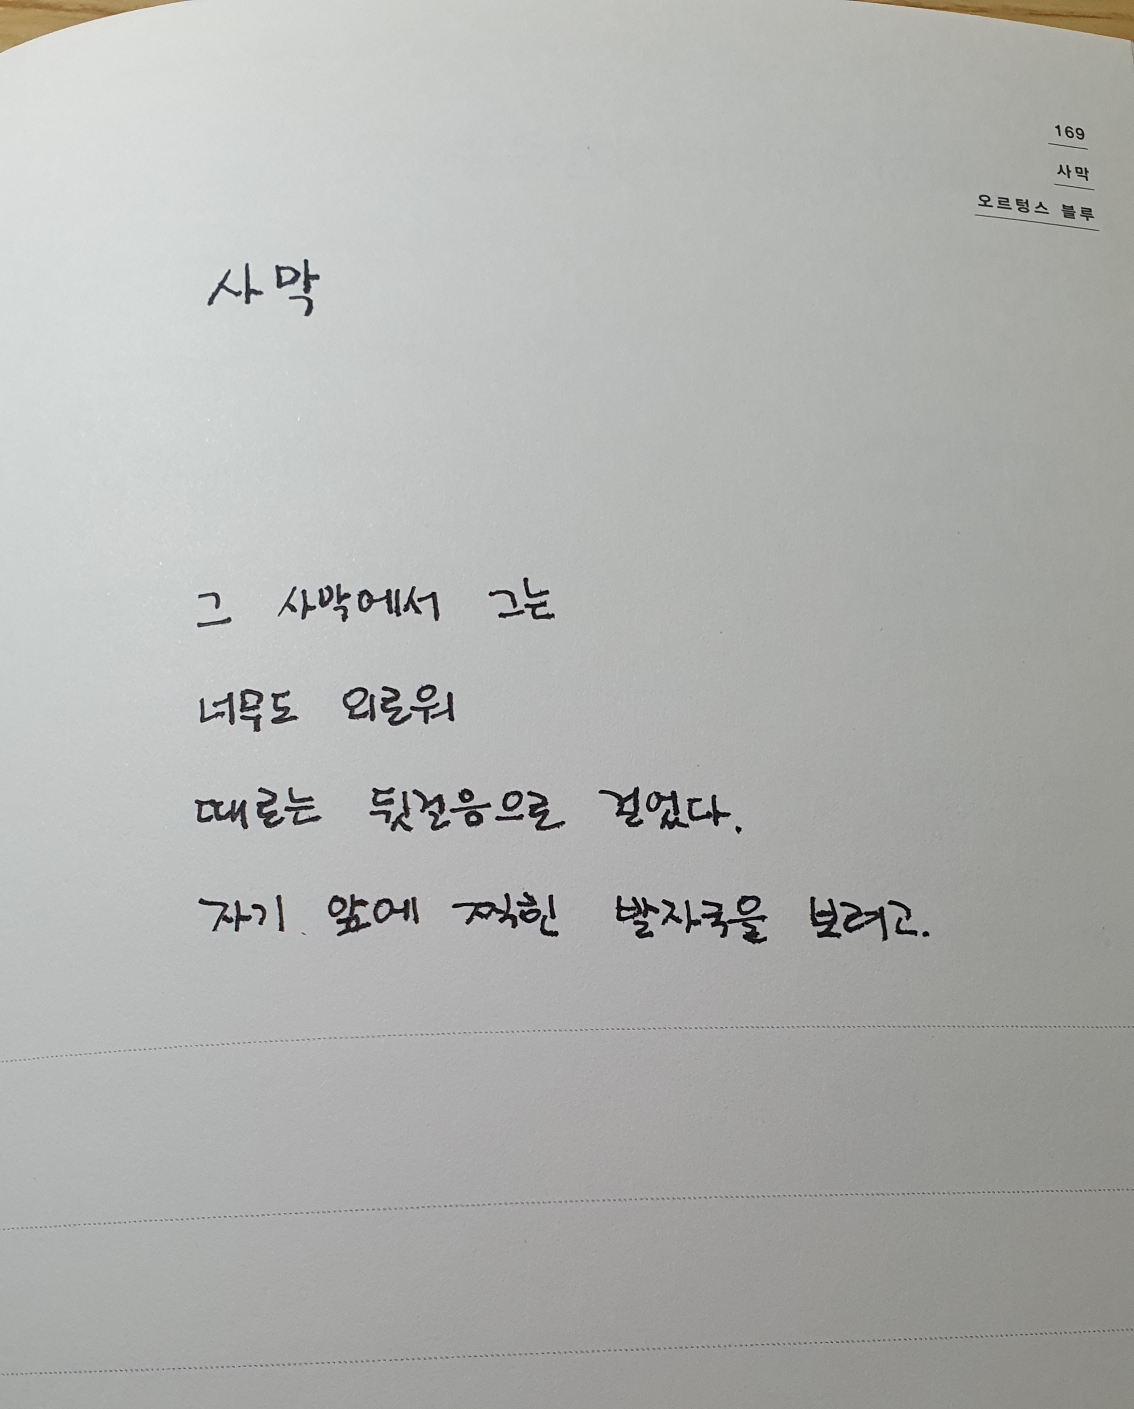 169
사막
오르텅스 블루
사막
그 사막에서 그는
너무도 외로워
때로는 뒷걸음으로 걸었다.
자기 앞에 찍힌 발자국을 보려고.